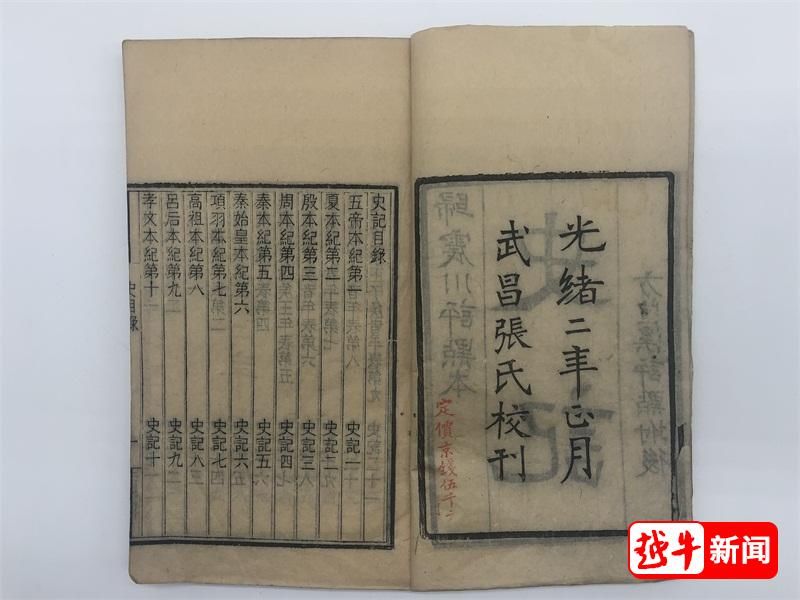 光緒二年正月
武昌張氏校刊
定價京錢伍千二
歸震川評點本
史記
方望溪評點附後
史記目錄
五帝本紀第一　史記一
夏本紀第二　史記二
殷本紀第三　史記三
周本紀第四　史記四
秦本紀第五　史記五
秦始皇本紀第六　史記六
項羽本紀第七　史記七
高祖本紀第八　史記八
呂后本紀第九　史記九
孝文本紀第十　史記十
史目錄
一
越牛新闻